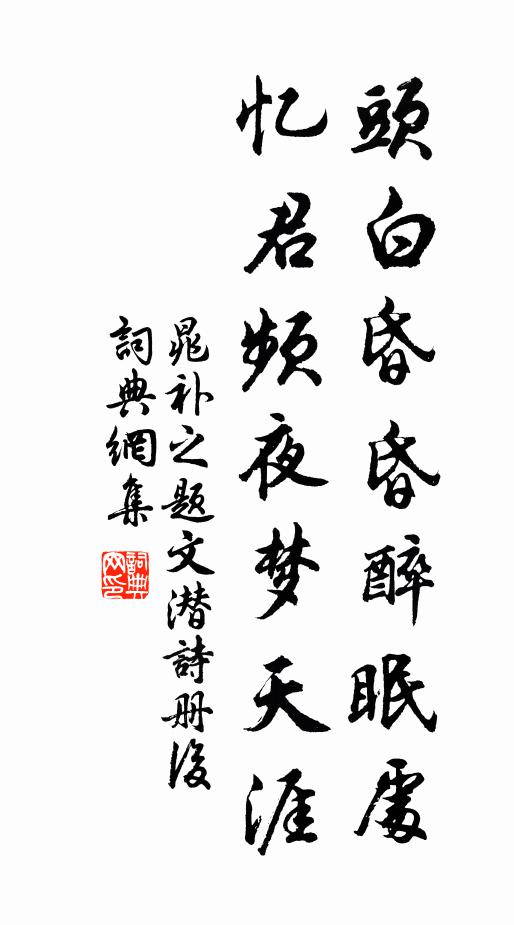 頭白昏昏醉眠處
忆君频夜梦天涯
晁补之题文潜詩册後
詞典網集
詞典网印